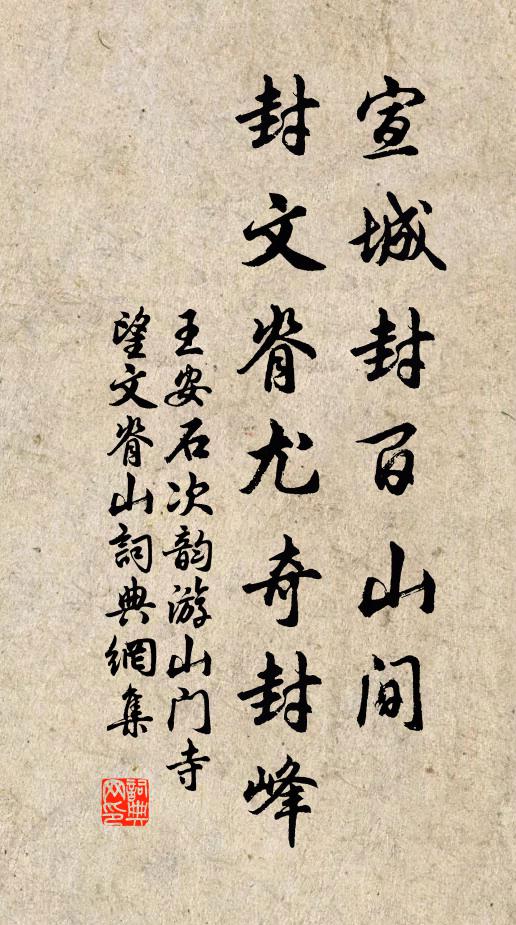 宣城封百山间
封文脊尤奇封峰
王安石次韵游山门寺
望文脊山詞典網集
詞典网印